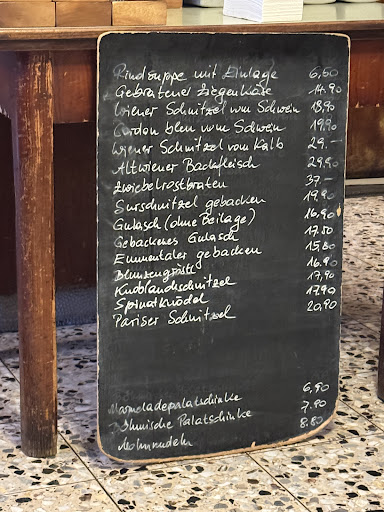 Rindsuppe mit Einlage 6,50
Gebratener Ziegenkäse 14.90
Wiener Schnitzel vom Schwein 18,90
Cordon bleu vom Schwein 19,90
Wiener Schnitzel vom Kalb 29.-
Altwiener Backfleisch 29,90
Zwiebelrostbraten 37.-
Surschnitzel gebacken 19,90
Gulasch (ohne Beilage) 16,90
Gebackenes Gulasch 17.50
Emmentaler gebacken 15,80
Blunzengröstl 16.90
Knoblauchschnitzel 17,90
Spinatknödel 17.90
Pariser Schnitzel 20,90
Marmeladepalatschinke 6,90
Böhmische Palatschinke 7.90
Mohnnudeln 8.80